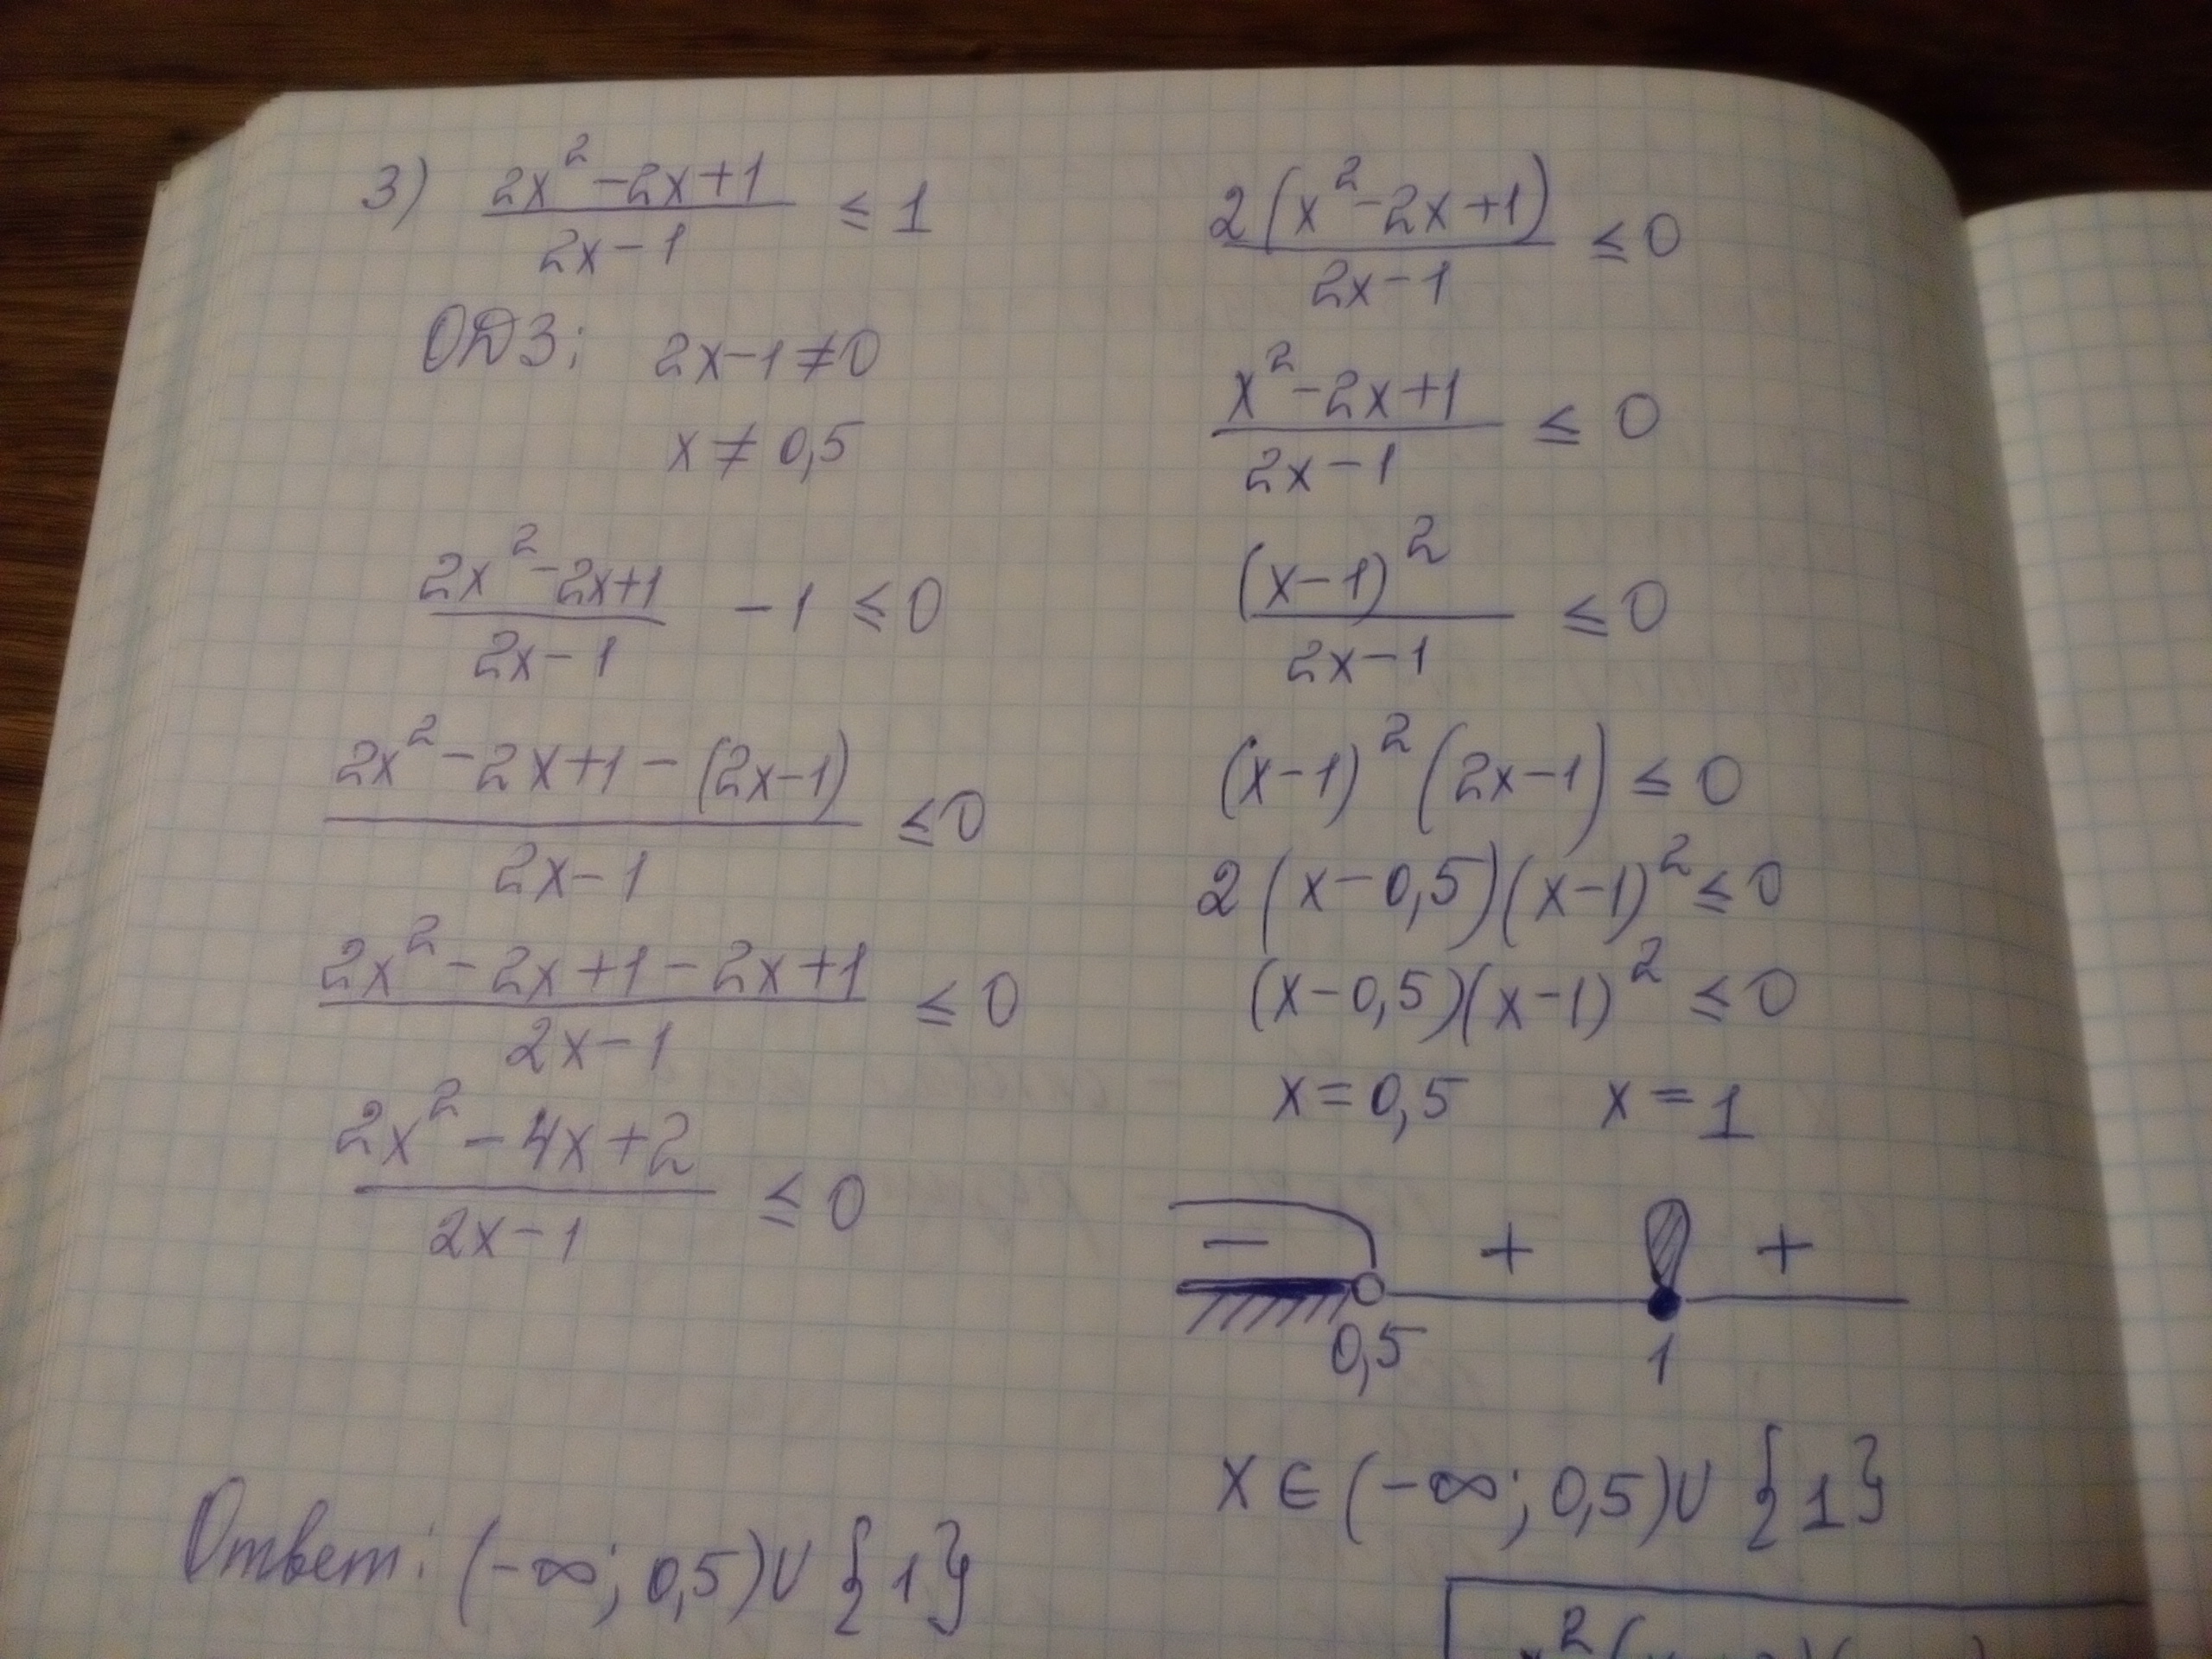 3) (2x² - 2x + 1)/(2x - 1) ≤ 1
ОДЗ: 2x - 1 ≠ 0
x ≠ 0,5
(2x² - 2x + 1)/(2x - 1) - 1 ≤ 0
(2x² - 2x + 1 - (2x - 1))/(2x - 1) ≤ 0
(2x² - 2x + 1 - 2x + 1)/(2x - 1) ≤ 0
(2x² - 4x + 2)/(2x - 1) ≤ 0
2(x² - 2x + 1)/(2x - 1) ≤ 0
(x² - 2x + 1)/(2x - 1) ≤ 0
(x - 1)²/(2x - 1) ≤ 0
(x - 1)²(2x - 1) ≤ 0
2(x - 0,5)(x - 1)² ≤ 0
(x - 0,5)(x - 1)² ≤ 0
x = 0,5 x = 1
- + +
0,5 1
x ∈ (-∞; 0,5) ∪ {1}
Ответ: (-∞; 0,5) ∪ {1}